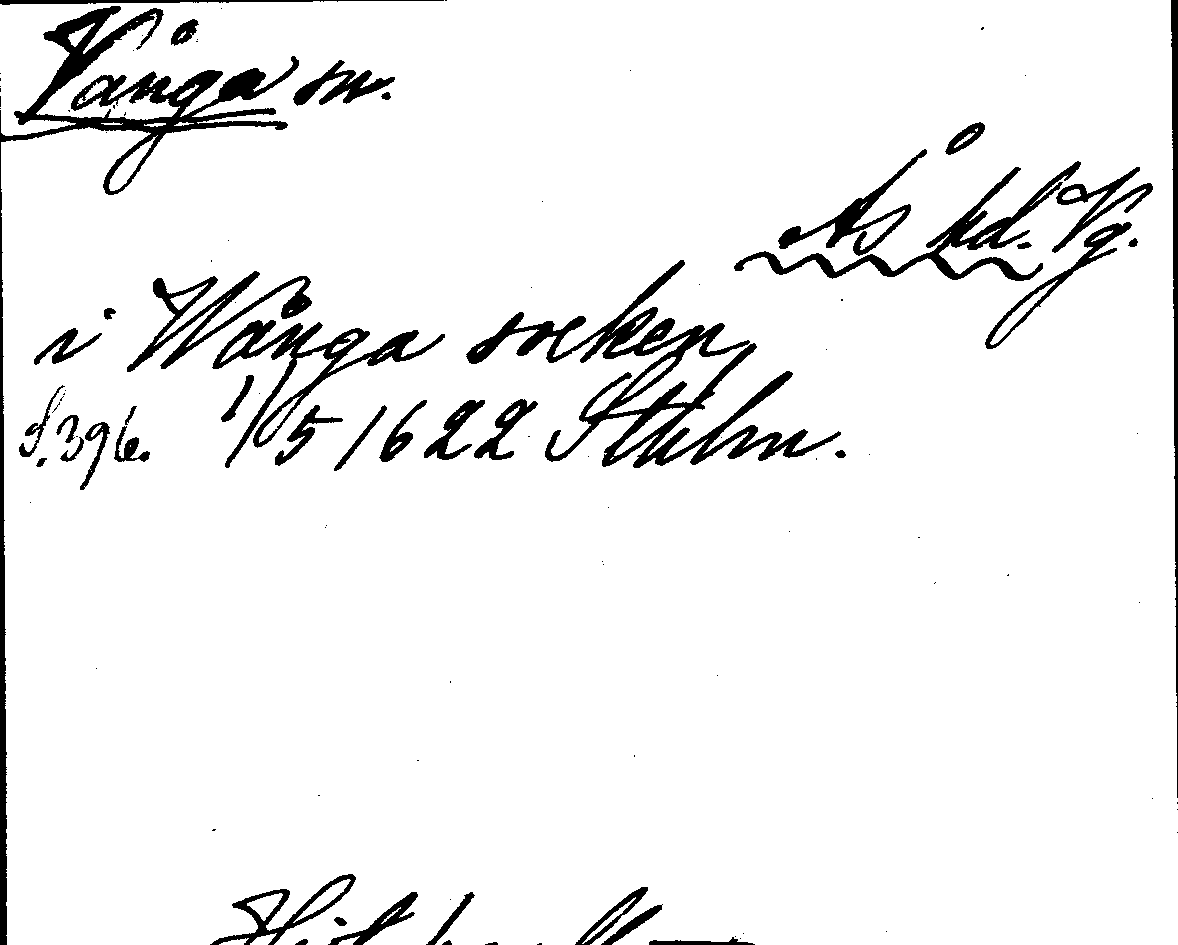 Vånga sn.
Ås hd. Vg.
i Wånga socken
S. 396. 1/5 1622 Sthlm.